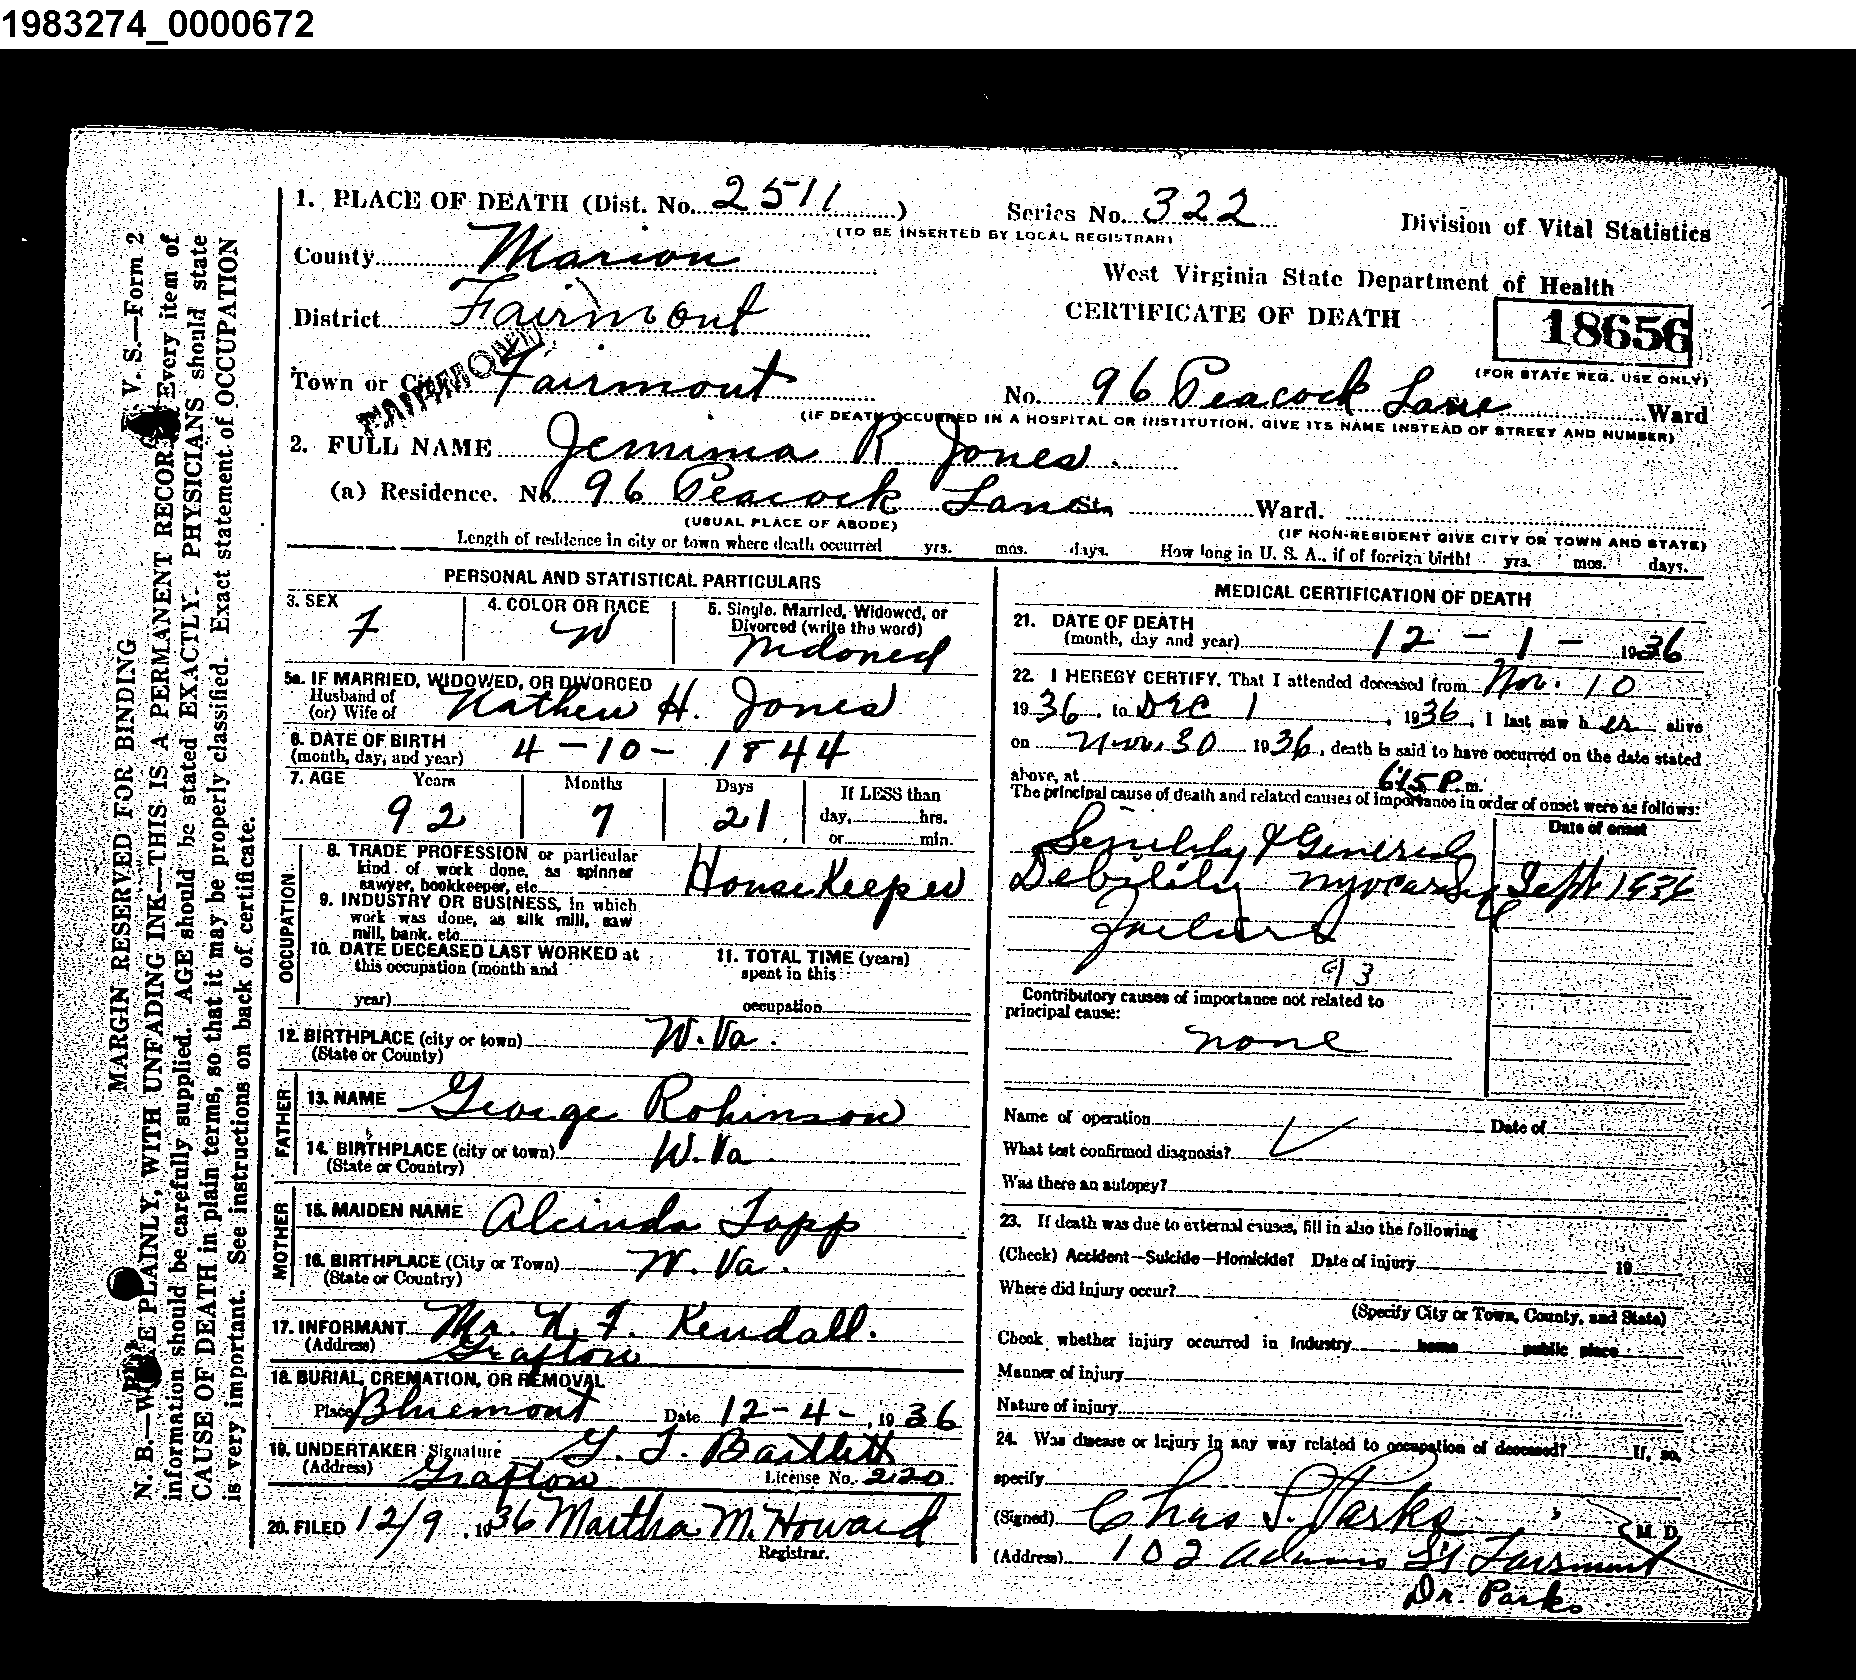 1983274_0000672
1. PLACE OF DEATH (Dist. No. 2511 )
Series No. 322
(TO BE INSERTED BY LOCAL REGISTRAR)
Division of Vital Statistics
County Marion
West Virginia State Department of Health
District Fairmont
CERTIFICATE OF DEATH
18656
(FOR STATE REG. USE ONLY)
Town or City Fairmont
No. 96 Peacock Lane Ward
(IF DEATH OCCURRED IN A HOSPITAL OR INSTITUTION, GIVE ITS NAME INSTEAD OF STREET AND NUMBER)
2. FULL NAME Jemima R Jones
(a) Residence. No. 96 Peacock Lane St. Ward.
(USUAL PLACE OF ABODE)
(IF NON-RESIDENT GIVE CITY OR TOWN AND STATE)
Length of residence in city or town where death occurred yrs. mos. days. How long in U. S. A., if of foreign birth? yrs. mos. days.
PERSONAL AND STATISTICAL PARTICULARS
3. SEX
F
4. COLOR OR RACE
W
5. Single, Married, Widowed, or
Divorced (write the word)
5a. IF MARRIED, WIDOWED, OR DIVORCED
Husband of
(or) Wife of Nathew H. Jones
6. DATE OF BIRTH
(month, day, and year) 4-10-1844
7. AGE Years Months Days If LESS than
92 7 21 day, hrs.
or min.
OCCUPATION
8. TRADE PROFESSION or particular
kind of work done, as spinner
sawyer, bookkeeper, etc. House Keeper
9. INDUSTRY OR BUSINESS, in which
work was done, as silk mill, saw
mill, bank. etc.
10. DATE DECEASED LAST WORKED at
this occupation (month and
year)
11. TOTAL TIME (years)
spent in this
occupation
12. BIRTHPLACE (city or town) W. Va.
(State or County)
FATHER
13. NAME George Robinson
14. BIRTHPLACE (city or town) W. Va
(State or Country)
MOTHER
15. MAIDEN NAME Alcinda Topp
16. BIRTHPLACE (City or Town) W. Va.
(State or Country)
17. INFORMANT Mr. N. F. Kendall.
(Address) Grafton
18. BURIAL, CREMATION, OR REMOVAL
Place Bluemont Date 12-4-, 1936
19. UNDERTAKER Signature Bartlett
(Address) Grafton License No. 220
20. FILED 12/9, 1936 Martha M. Howard
Registrar.
MEDICAL CERTIFICATION OF DEATH
21. DATE OF DEATH
(month, day and year) 12-1-1936
22. I HEREBY CERTIFY, That I attended deceased from Nov. 10
1936, to Dec 1, 1936, I last saw her alive
on Nov. 30 1936, death is said to have occurred on the date stated
above, at 6:15 P. m.
The principal cause of death and related causes of importance in order of onset were as follows:
Date of onset
Senility & General
Debility Myocardial Sept 1936
Failure
93
Contributory causes of importance not related to
principal cause:
none
Name of operation Date of
What test confirmed diagnosis?
Was there an autopsy?
23. If death was due to external causes, fill in also the following
(Check) Accident—Suicide—Homicide? Date of injury 19
Where did injury occur?
(Specify City or Town, County, and State)
Check whether injury occurred in industry home public place
Manner of injury
Nature of injury
24. Was disease or injury in any way related to occupation of deceased? If, so,
specify
(Signed) Chas S. Parks M. D.
(Address) 102 Adams St Fairmont
Dr. Parks
V. S.—Form 2
MARGIN RESERVED FOR BINDING
N. B.—WRITE PLAINLY, WITH UNFADING INK—THIS IS A PERMANENT RECORD. Every item of
information should be carefully supplied. AGE should be stated EXACTLY. PHYSICIANS should state
CAUSE OF DEATH in plain terms, so that it may be properly classified. Exact statement of OCCUPATION
is very important. See instructions on back of certificate.